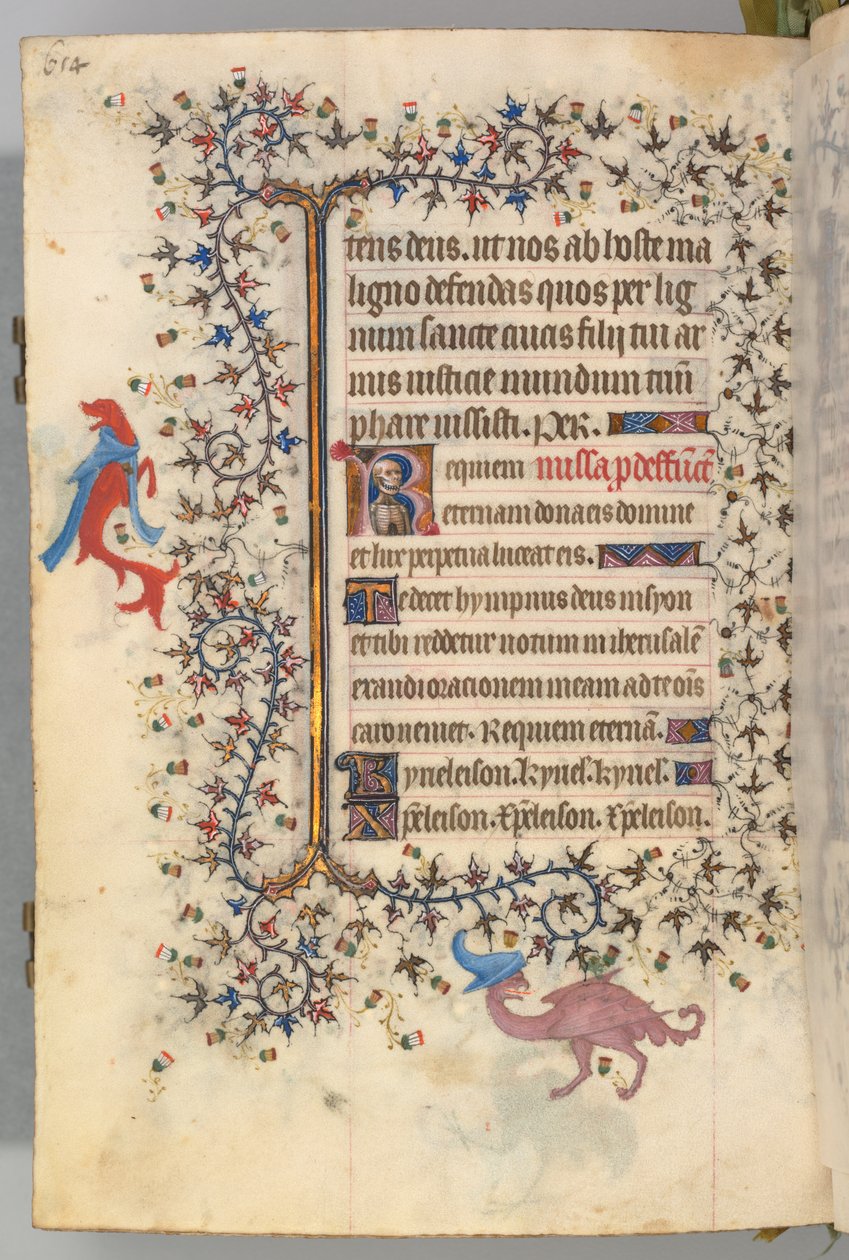 614
tens deus. ut nos ab hoste ma
ligno defendas quos per lig
num sancte crucis filij tui ar
mis iusticie mundum triũ
phare iussisti. Per.
Requiem missa p deffũct̃
eternam dona eis domine
et lux perpetua luceat eis.
Te decet hympnus deus in syon
et tibi reddetur uotum in iherusalẽ
exaudi oracionem meam ad te oĩs
caro ueniet. Requiem eternã.
Kyrieleison. kyriel. kyriel.
Xp̃eleison. Xp̃eleison. Xp̃eleison.